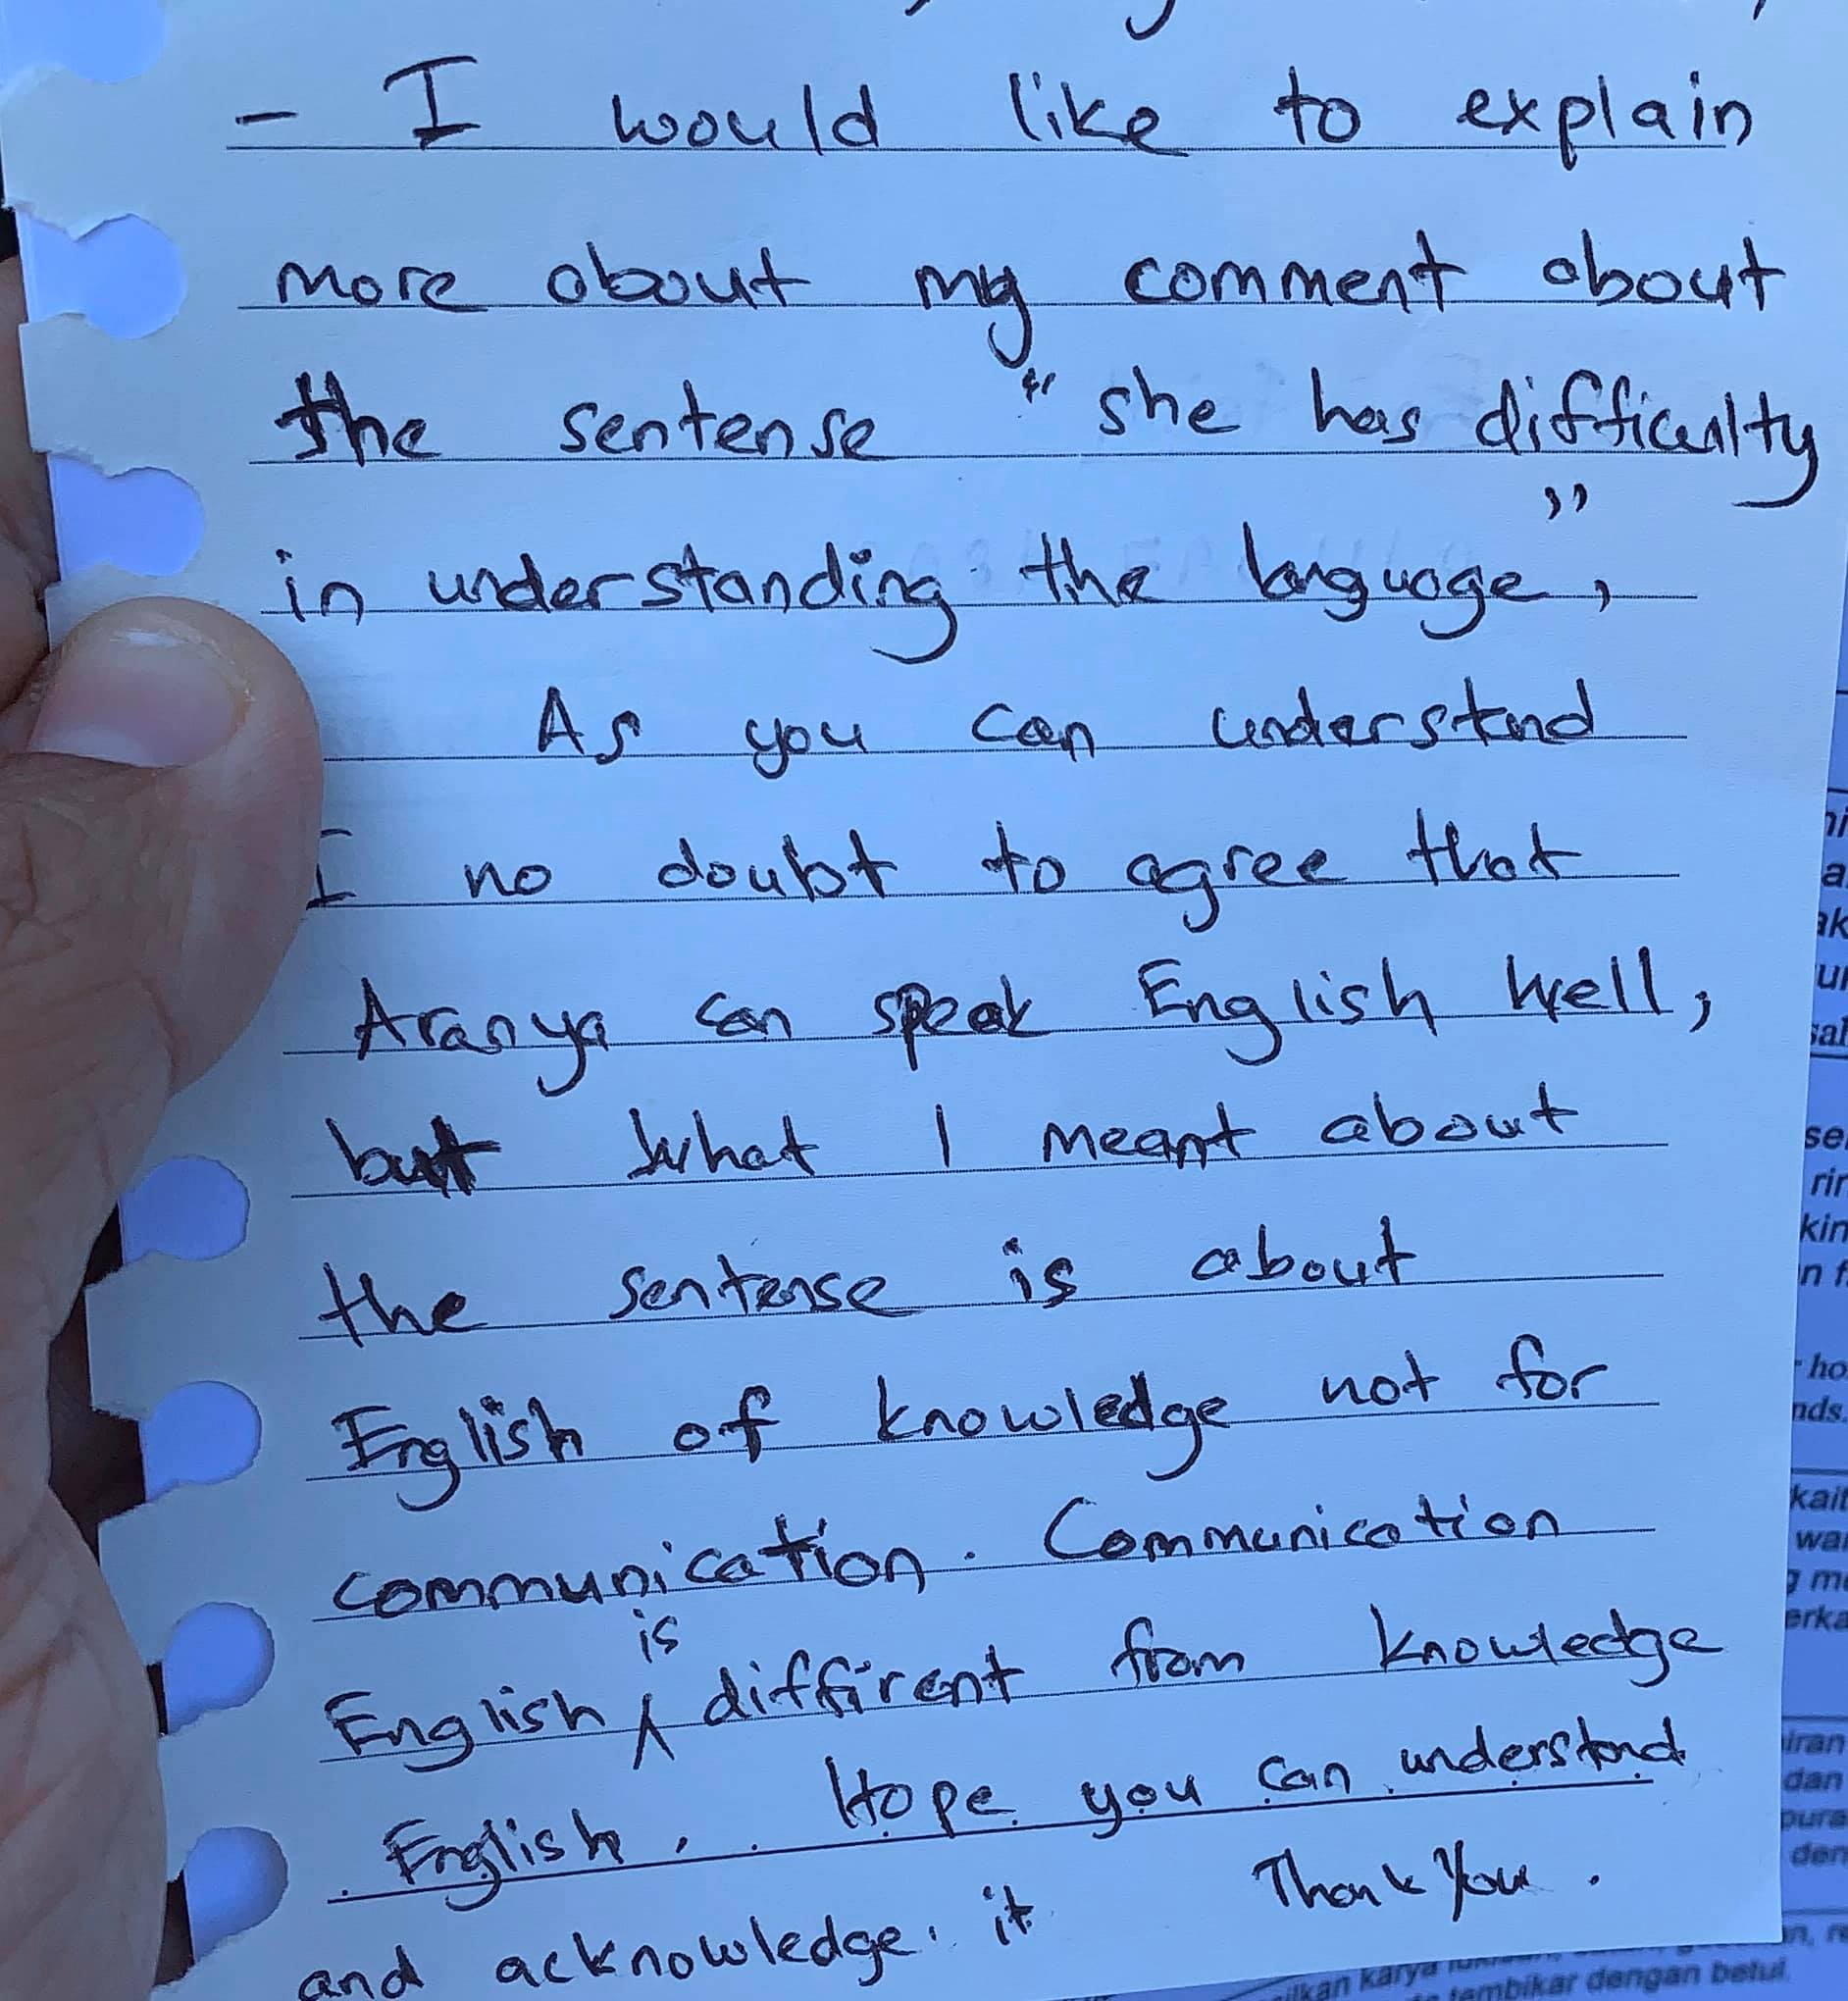 - I would like to explain
more about my comment about
the sentense " she has difficulty
in understanding the language",
As you can understand
I no doubt to agree that
Aranya can speak English well,
but what I meant about
the sentense is about
English of knowledge not for
communication. Communication
English is diffirent from knowledge
English. Hope you can understand
and acknowledge it Thank You.
ilkan karya
tembikar dengan betul.